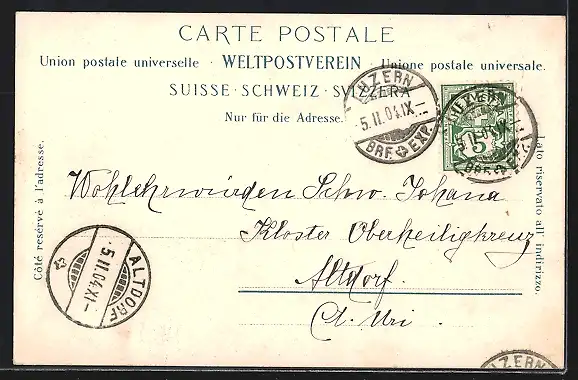 CARTE POSTALE
Union postale universelle · WELTPOSTVEREIN · Unione postale universale.
SUISSE · SCHWEIZ · SVIZZERA
Nur für die Adresse.
LUZERN
5.II.04.IX–
BRF. EXP.
LUZERN
5.II.04.IX
BRF. EXP.
5
Côté réservé à l'adresse.
Lato riservato all' indirizzo.
Wohlehrwürden Schw. Johana
Kloster Oberheiligkreuz
Altdorf.
Ct. Uri.
ALTDORF
5.II.04.XI–
LUZERN